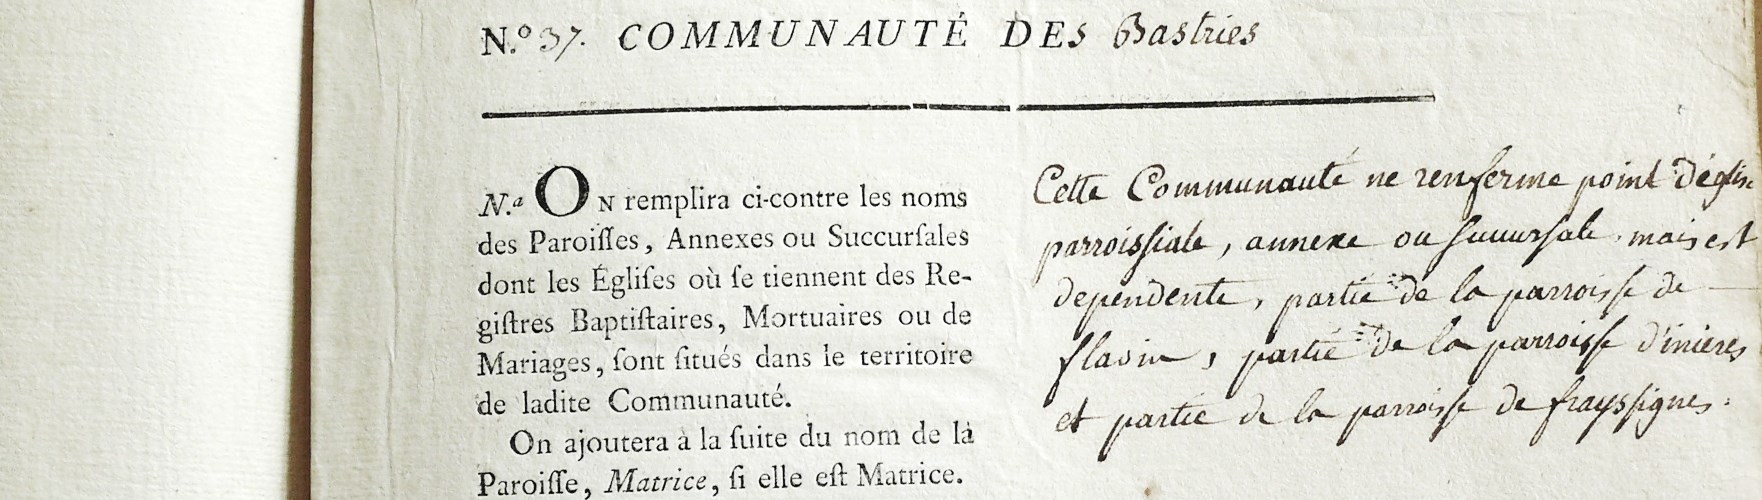 N.º 37. COMMUNAUTÉ DES Bastries
N.ª ON remplira ci-contre les noms
des Paroiſſes, Annexes ou Succurſales
dont les Égliſes où ſe tiennent des Re-
giſtres Baptiſtaires, Mortuaires ou de
Mariages, ſont ſitués dans le territoire
de ladite Communauté.
On ajoutera à la ſuite du nom de la
Paroiſſe, Matrice, ſi elle eſt Matrice.
Cette Communauté ne renferme point d'église
parroissiale, annexe ou succursale, mais est
dependente, partie de la parroisse de
flavin, partie de la parroisse d'inieres
et partie de la parroisse de frayssignes.